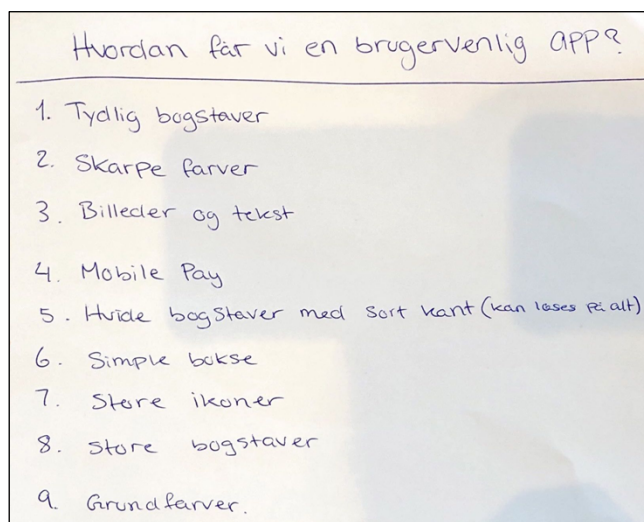 Hvordan får vi en brugervenlig app?
1. Tydlig bogstaver
2. Skarpe farver
3. Billeder og tekst
4. Mobile Pay
5. Hvide bogstaver med sort kant (kan læses på alt)
6. Simple bokse
7. Store ikoner
8. Store bogstaver
9. Grundfarver.